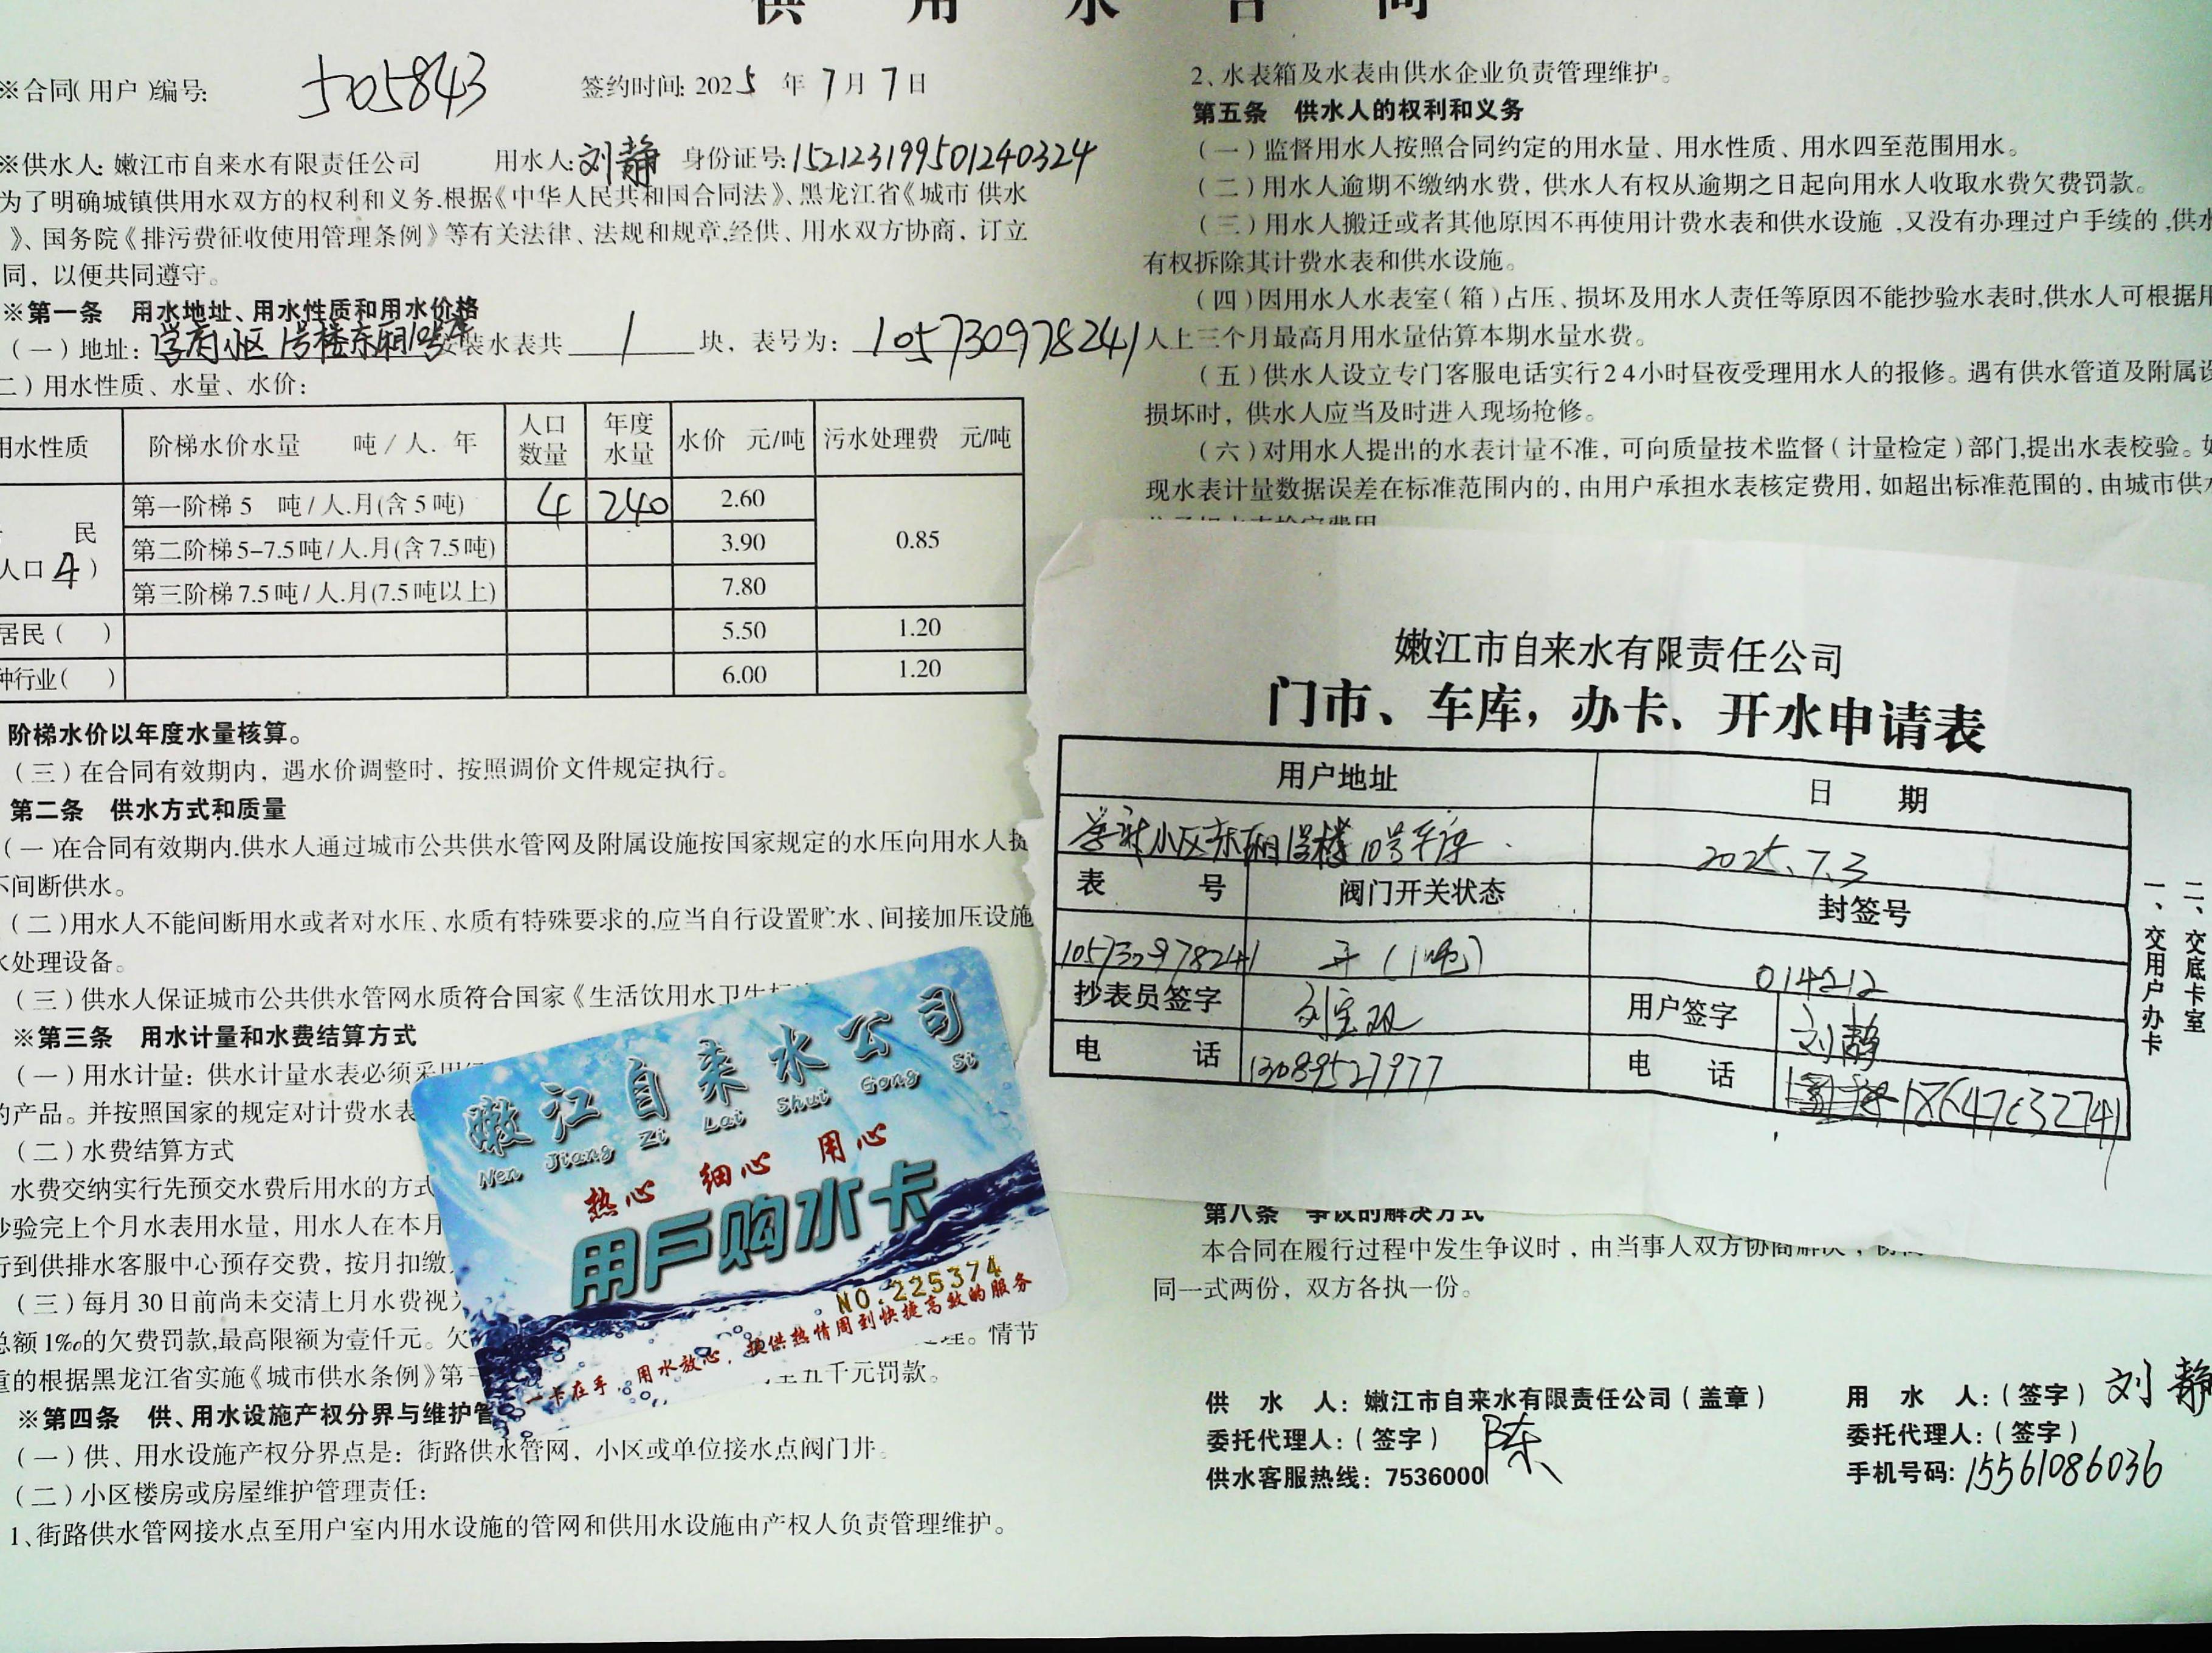 供用水合同
※合同(用户)编号: 505843 签约时间: 2025年7月7日
※供水人: 嫩江市自来水有限责任公司 用水人: 刘静 身份证号: 152123199501240324
为了明确城镇供用水双方的权利和义务.根据《中华人民共和国合同法》、黑龙江省《城市 供水
》、国务院《排污费征收使用管理条例》等有关法律、法规和规章,经供、用水双方协商, 订立
同, 以便共同遵守。
※第一条 用水地址、用水性质和用水价格
(一)地址: 学府小区1号楼东厢10号车 安装水表共 1 块, 表号为: 105730978241
二)用水性质、水量、水价:
用水性质 阶梯水价水量 吨/人.年 人口数量 年度水量 水价 元/吨 污水处理费 元/吨
民
人口4)
第一阶梯5 吨/人.月(含5吨) 4 240 2.60
第二阶梯5-7.5吨/人.月(含7.5吨) 3.90 0.85
第三阶梯7.5吨/人.月(7.5吨以上) 7.80
居民( ) 5.50 1.20
种行业( ) 6.00 1.20
阶梯水价以年度水量核算。
(三)在合同有效期内, 遇水价调整时, 按照调价文件规定执行。
第二条 供水方式和质量
(一)在合同有效期内.供水人通过城市公共供水管网及附属设施按国家规定的水压向用水人提
不间断供水。
(二)用水人不能间断用水或者对水压、水质有特殊要求的,应当自行设置贮水、间接加压设施
水处理设备。
(三)供水人保证城市公共供水管网水质符合国家《生活饮用水卫生标
※第三条 用水计量和水费结算方式
(一)用水计量: 供水计量水表必须采用
的产品。并按照国家的规定对计费水表
(二)水费结算方式
水费交纳实行先预交水费后用水的方式
抄验完上个月水表用水量, 用水人在本月
行到供排水客服中心预存交费, 按月扣缴
(三)每月30日前尚未交清上月水费视为
总额1‰的欠费罚款,最高限额为壹仟元。欠 理。情节
重的根据黑龙江省实施《城市供水条例》第三 至五千元罚款。
※第四条 供、用水设施产权分界与维护管
(一)供、用水设施产权分界点是: 街路供水管网, 小区或单位接水点阀门井。
(二)小区楼房或房屋维护管理责任:
1、街路供水管网接水点至用户室内用水设施的管网和供用水设施由产权人负责管理维护。
2、水表箱及水表由供水企业负责管理维护。
第五条 供水人的权利和义务
(一)监督用水人按照合同约定的用水量、用水性质、用水四至范围用水。
(二)用水人逾期不缴纳水费, 供水人有权从逾期之日起向用水人收取水费欠费罚款。
(三)用水人搬迁或者其他原因不再使用计费水表和供水设施,又没有办理过户手续的,供水
有权拆除其计费水表和供水设施。
(四)因用水人水表室(箱)占压、损坏及用水人责任等原因不能抄验水表时,供水人可根据用
人上三个月最高月用水量估算本期水量水费。
(五)供水人设立专门客服电话实行24小时昼夜受理用水人的报修。遇有供水管道及附属设
损坏时, 供水人应当及时进入现场抢修。
(六)对用水人提出的水表计量不准, 可向质量技术监督(计量检定)部门,提出水表校验。如
现水表计量数据误差在标准范围内的, 由用户承担水表核定费用, 如超出标准范围的, 由城市供水
嫩江市自来水有限责任公司
门市、车库, 办卡、开水申请表
用户地址 日 期
学府小区东厢1号楼10号车库 2025.7.3
表 号 阀门开关状态 封签号
105730978241 开(1吨) 014212
抄表员签字 刘宝双 用户签字 刘静
电 话 13089527977 电 话
一、交用户办卡
二、交底卡室
第八条 争议的解决方式
本合同在履行过程中发生争议时, 由当事人双方协商解决,
同一式两份, 双方各执一份。
供 水 人: 嫩江市自来水有限责任公司(盖章) 用 水 人:(签字) 刘静
委托代理人:(签字) 陈 委托代理人:(签字)
供水客服热线: 7536000 手机号码: 15561086036
嫩江自来水公司
Nen Jiang Zi Lai Shui Gong Si
热心 细心 用心
用户购水卡
NO.225374
一卡在手, 用水放心, 提供热情周到快捷高效的服务